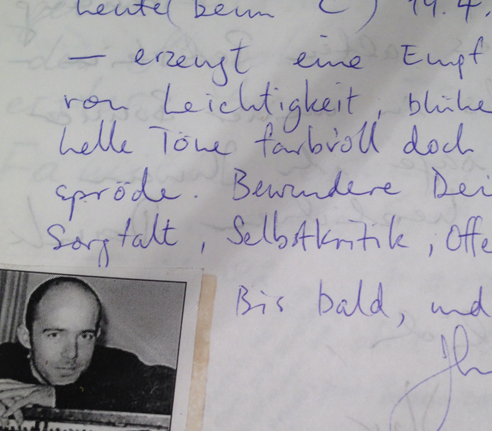 heute (beim C) 19.4.
– erzeugt eine Empf
von Leichtigkeit, blühe
helle Töne farbvoll doch
spröde. Bewundere Dei
Sorgfalt, Selbstkritik, Offe
Bis bald, und